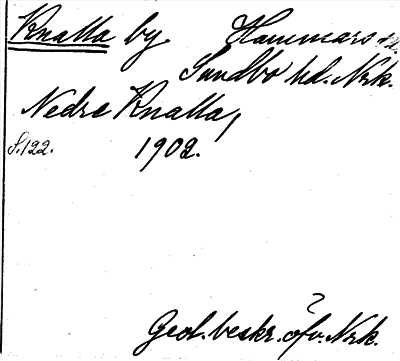 Knalla by. Hammars sn.
Sundbo hd. Nrk.
Nedre Knalla,
S. 122. 1902.
?
Geol. beskr. öfv. Nrk.